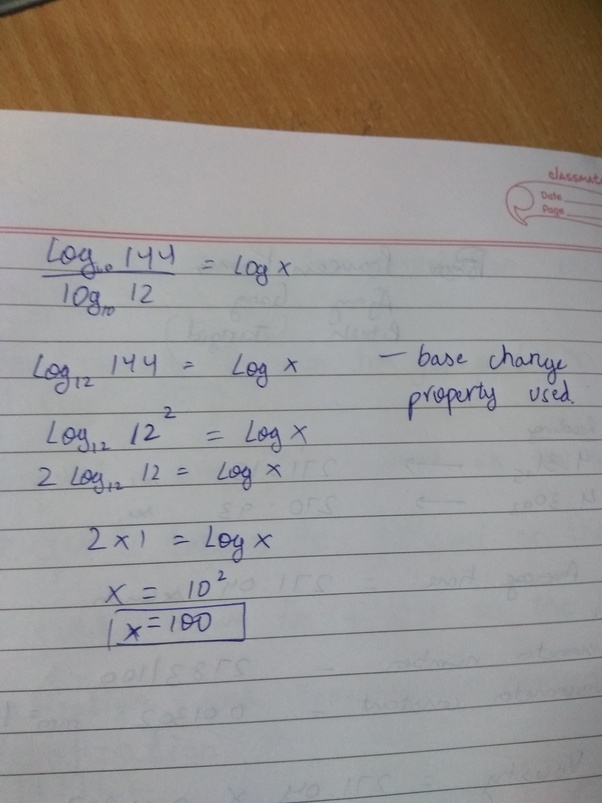 classmat
Date
Page
Log₁₀ 144 / log₁₀ 12 = Log x
Log₁₂ 144 = Log x — base change
property used.
Log₁₂ 12² = Log x
2 Log₁₂ 12 = Log x
2 × 1 = Log x
x = 10²
x = 100